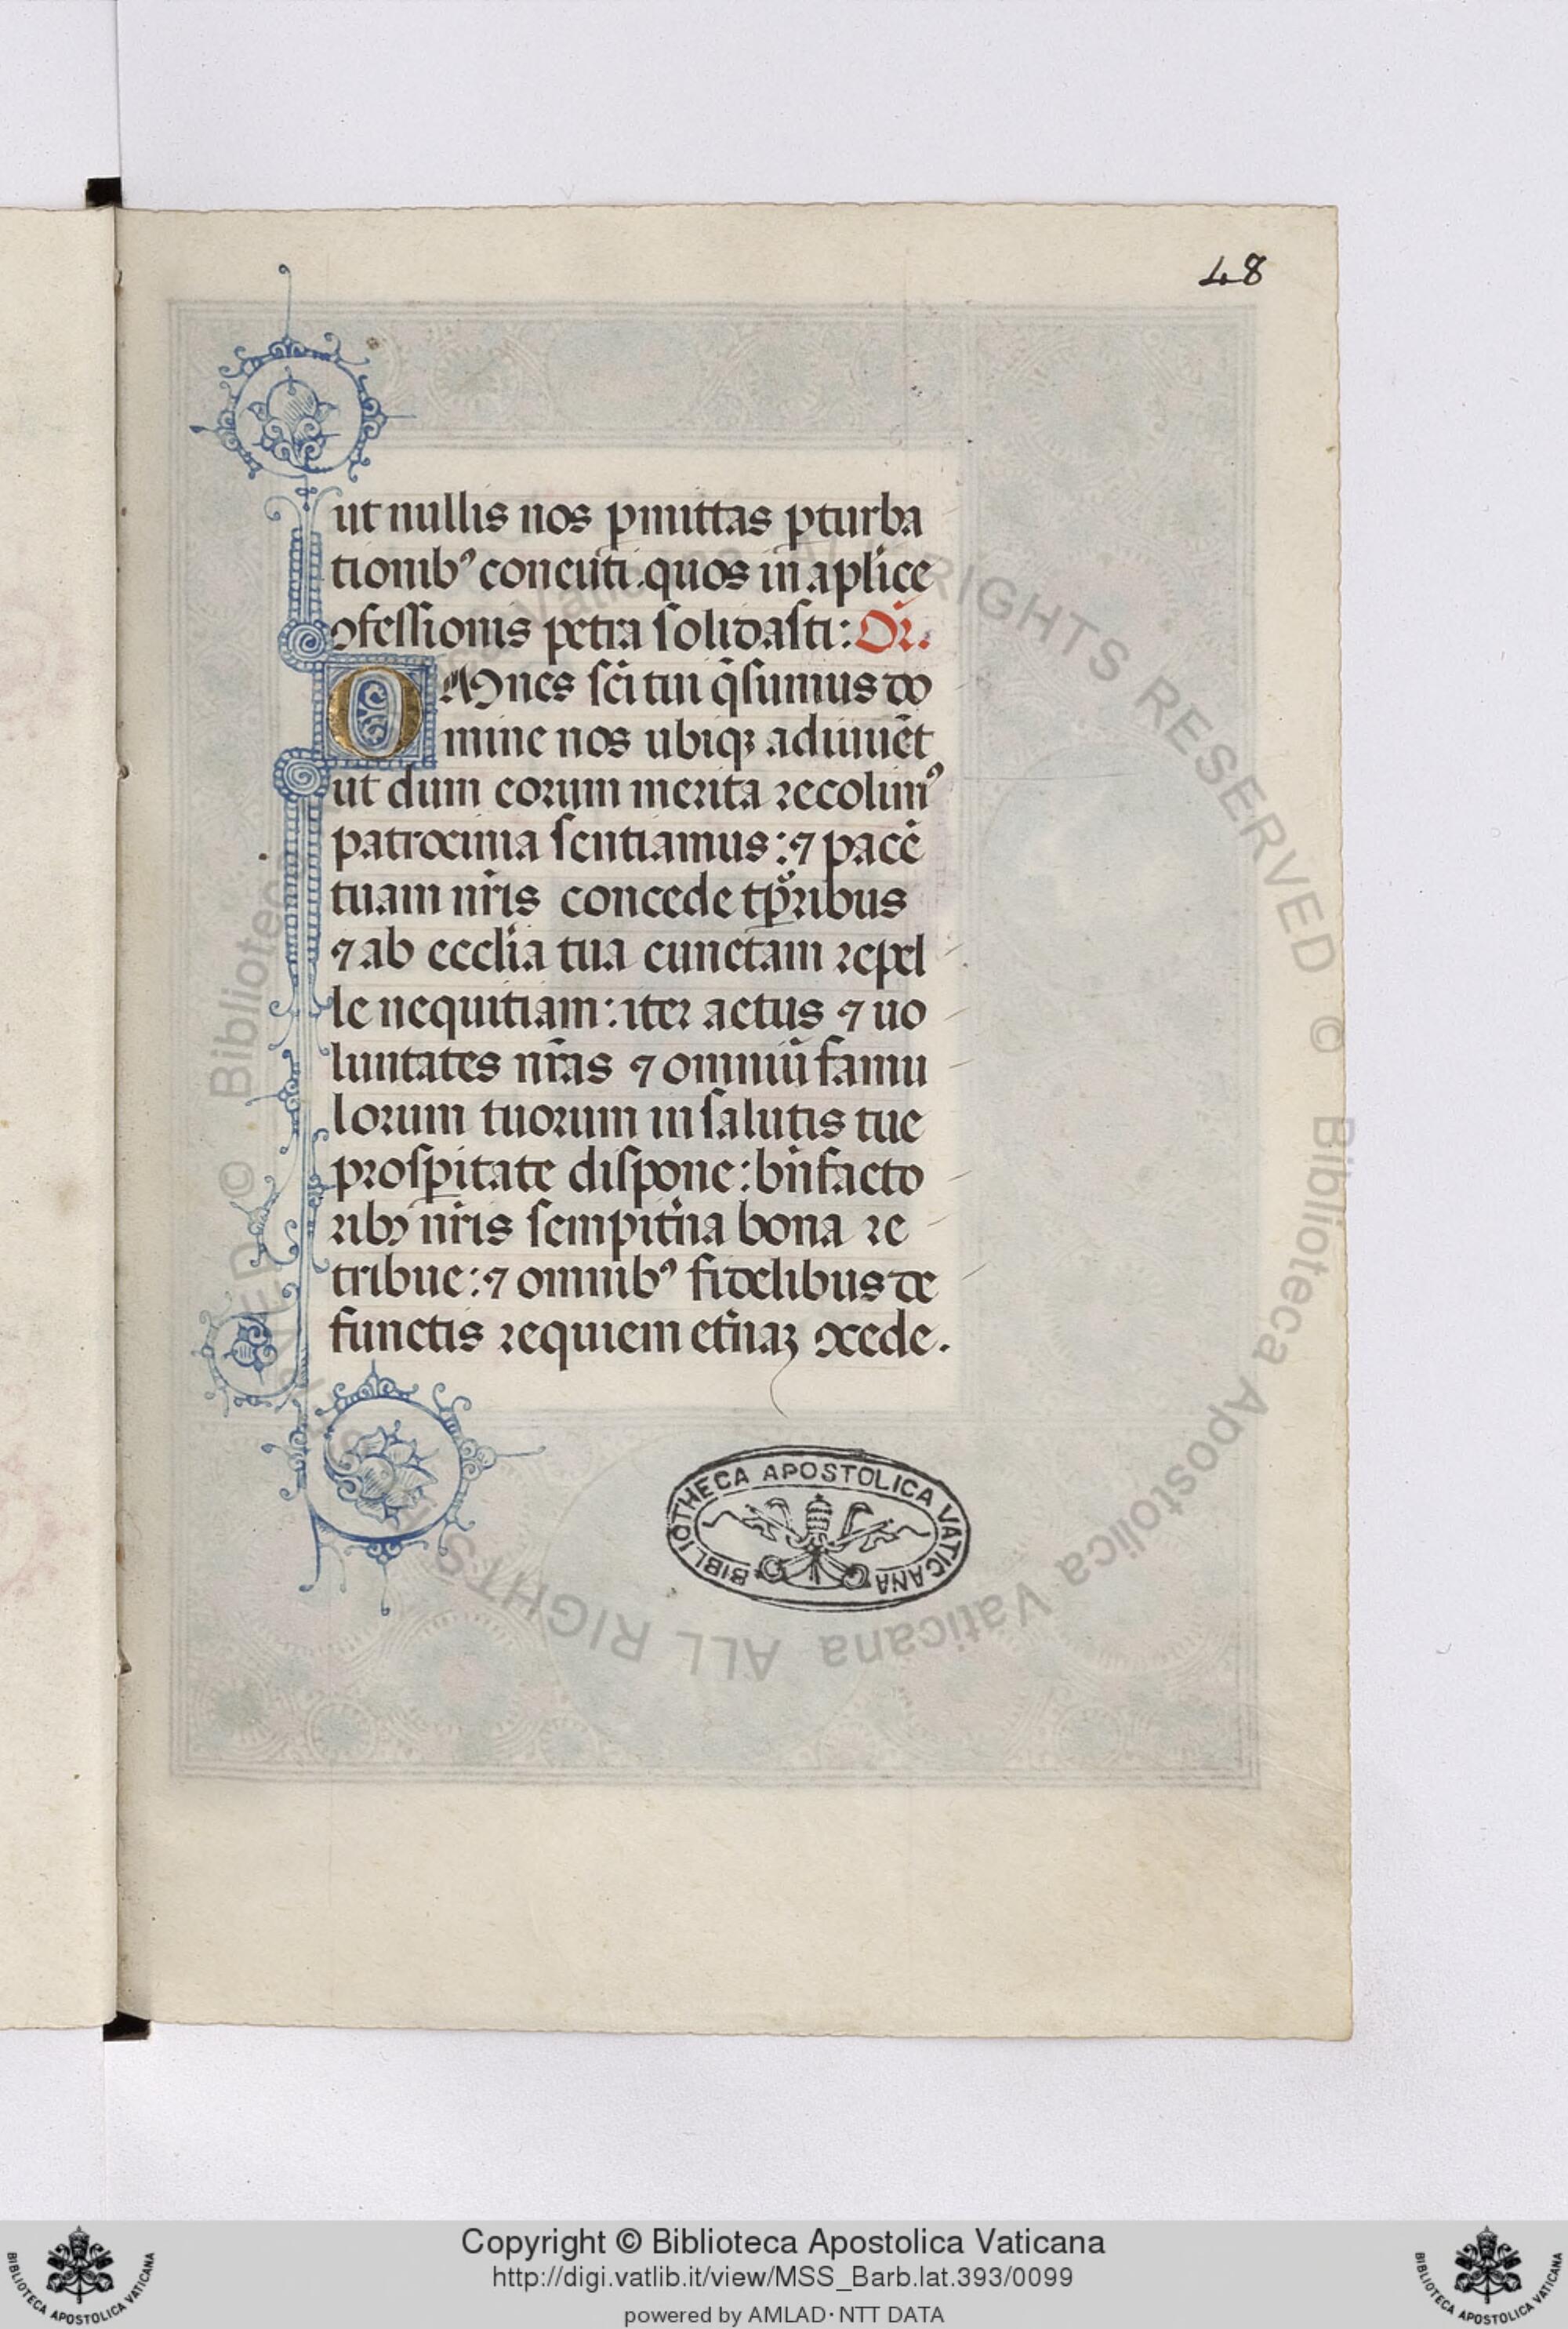 48
ut nullis nos ꝑmittas ꝑturba
tionibꝰ concuti. quos in aplice
ꝯfessionis petra solidasti: Or̄.
OMnes sc̄i tui q̄sumus do
mine nos ubiqꝫ adiuuēt
ut dum eorum merita recolimꝰ
patrocinia sentiamus: ⁊ pacē
tuam nr̄is concede tꝑribus
⁊ ab eccl̄ia tua cunctam repel
le nequitiam: iter actus ⁊ uo
luntates nr̄as ⁊ omniū famu
lorum tuorum in salutis tue
prosꝑitate dispone: bn̄facto
ribꝫ nr̄is sempit̄na bona re
tribue: ⁊ omnibꝰ fidelibus de
functis requiem et̄naꝫ ꝯcede.
BIBLIOTHECA APOSTOLICA VATICANA
© Biblioteca Apostolica Vaticana ALL RIGHTS RESERVED
Copyright © Biblioteca Apostolica Vaticana
http://digi.vatlib.it/view/MSS_Barb.lat.393/0099
powered by AMLAD·NTT DATA
BIBLIOTECA APOSTOLICA VATICANA
BIBLIOTECA APOSTOLICA VATICANA